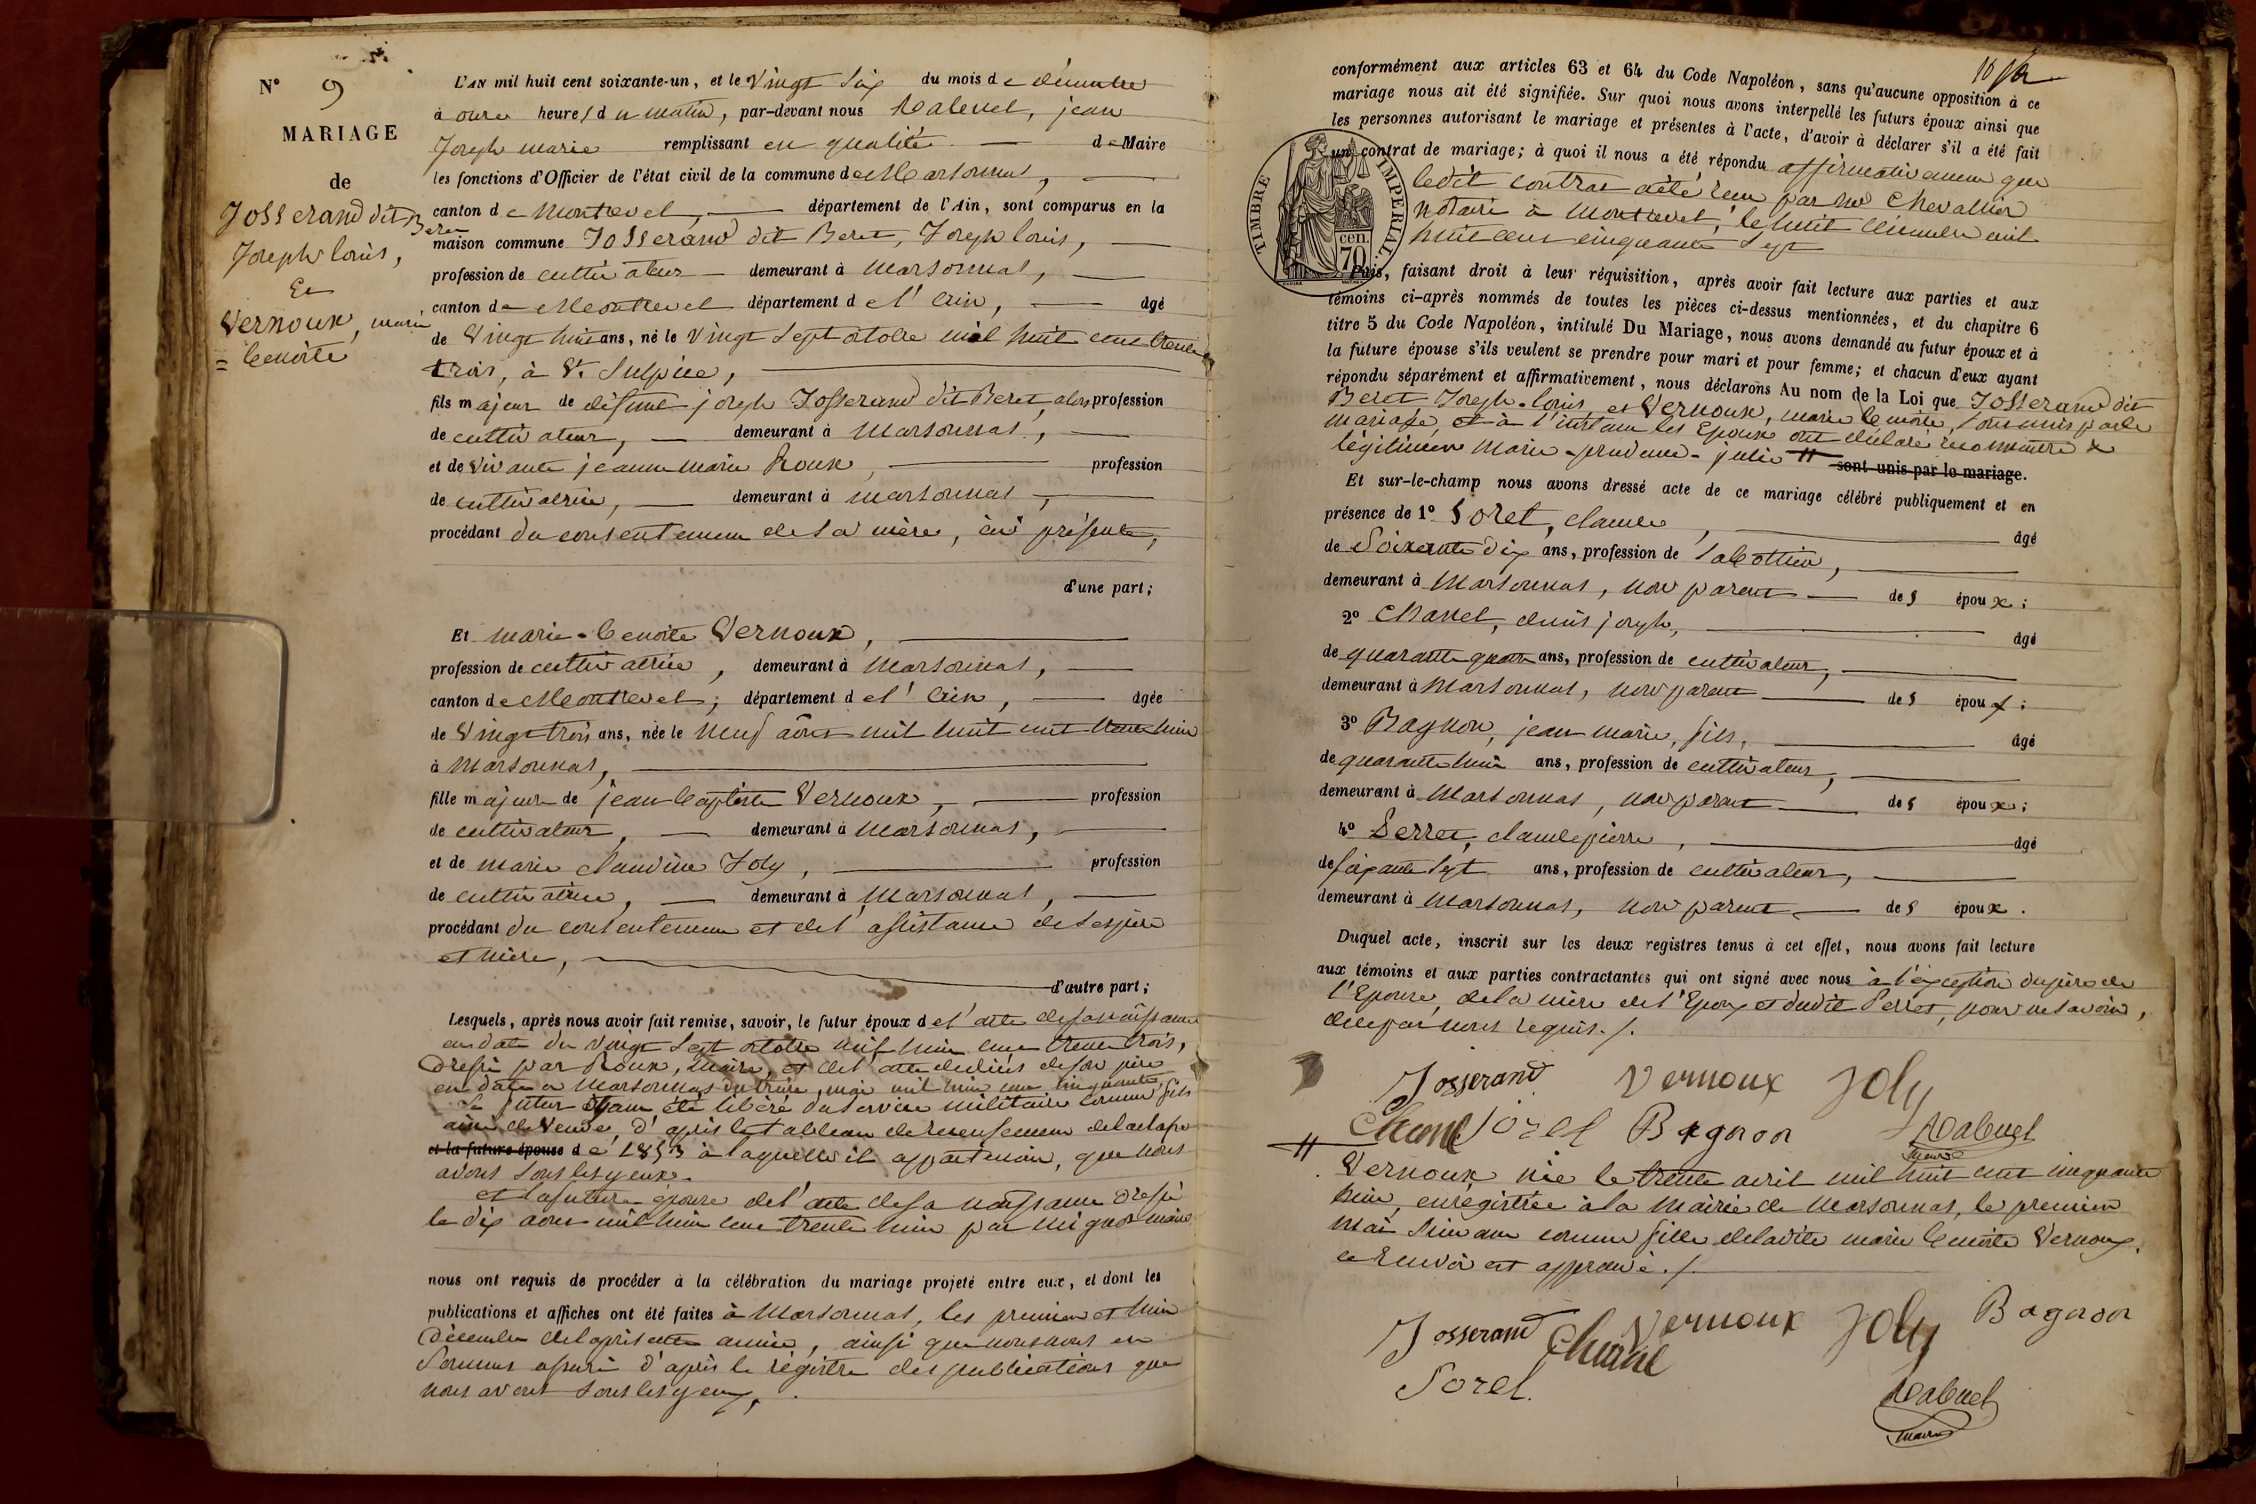 N° 9
MARIAGE
de
Josserand dit Beret
Joseph Louis,
Et
Vernoux, marie
= benoite
L'AN mil huit cent soixante-un, et le Vingt Six du mois de décembre
à onze heures du matin, par-devant nous Rabuel, jean
Joseph marie remplissant en qualité de Maire
les fonctions d'Officier de l'état civil de la commune de Marsonnas,
canton de Montrevel, département de l'Ain, sont comparus en la
maison commune Josserand dit Beret, Joseph louis,
profession de cultivateur demeurant à Marsonnas,
canton de Montrevel département de l'ain, âgé
de Vingt huit ans, né le Vingt Sept octobre mil huit cent trente
trois, à St. Sulpice,
fils majeur de défunt joseph Josserand dit Beret, alors profession
de cultivateur, demeurant à Marsonnas,
et de vivante jeanne marie Roux, profession
de cultivatrice, demeurant à marsonnas,
procédant du consentement de sa mère, ici présente,
d'une part;
Et marie-benoite Vernoux,
profession de cultivatrice, demeurant à Marsonnas,
canton de Montrevel; département de l'ain, âgée
de Vingt trois ans, née le neuf août mil huit cent trente huit
à Marsonnas,
fille majeure de jean baptiste Vernoux, profession
de cultivateur, demeurant à Marsonnas,
et de marie claudine Joly, profession
de cultivatrice, demeurant à Marsonnas,
procédant du consentement et de l'assistance de ses père
et mère,
d'autre part;
Lesquels, après nous avoir fait remise, savoir, le futur époux de l'acte de sa naissance
en date du vingt Sept octobre mil huit cent trente trois,
dressé par Roux, Maire, et de l'acte de décès de son père
en date a Marsonnas du treize mai mil huit cent cinquante,
le futur ayant été libéré du service militaire comme fils
ainé de Veuve, d'après le tableau de recensement de la classe
et la future épouse de 1853 à laquelle il appartenait, que nous
avons sous les yeux.
et la future épouse de l'acte de sa naissance dressé
le dix août mil huit cent trente huit par Mignot maire
nous ont requis de procéder à la célébration du mariage projeté entre eux, et dont les
publications et affiches ont été faites à Marsonnas, les premier et huit
décembre de la présente année, ainsi que nous nous en
sommes assuré d'après le régistre des publications que
nous avons sous les yeux,
10
conformément aux articles 63 et 64 du Code Napoléon, sans qu'aucune opposition à ce
mariage nous ait été signifiée. Sur quoi nous avons interpellé les futurs époux ainsi que
les personnes autorisant le mariage et présentes à l'acte, d'avoir à déclarer s'il a été fait
un contrat de mariage; à quoi il nous a été répondu affirmativement que
ledit contrat a été reçu par me Chevallier
notaire à Montrevel, le huit décembre mil
huit cent cinquante Sept
TIMBRE IMPERIAL
70 cen.
Puis, faisant droit à leur réquisition, après avoir fait lecture aux parties et aux
témoins ci-après nommés de toutes les pièces ci-dessus mentionnées, et du chapitre 6
titre 5 du Code Napoléon, intitulé Du Mariage, nous avons demandé au futur époux et à
la future épouse s'ils veulent se prendre pour mari et pour femme; et chacun d'eux ayant
répondu séparément et affirmativement, nous déclarons Au nom de la Loi que Josserand dit
Beret Joseph-louis et Vernoux, marie benoite, sont unis par le
mariage, et à l'instant les Epoux ont déclaré reconnaitre &
légitimer Marie-prudence-julie # sont unis par le mariage.
Et sur-le-champ nous avons dressé acte de ce mariage célébré publiquement et en
présence de 1° Sorel, claude, âgé
de Soixante dix ans, profession de Sabottier,
demeurant à Marsonnas, non parent des époux;
2° Chanel, denis joseph, âgé
de quarante quatre ans, profession de cultivateur,
demeurant à Marsonnas, non parent des époux;
3° Bagnon, jean marie, fils, âgé
de quarante huit ans, profession de cultivateur,
demeurant à Marsonnas, non parent des époux;
4° Perret, claude pierre, âgé
de soixante Sept ans, profession de cultivateur,
demeurant à Marsonnas, non parent des époux.
Duquel acte, inscrit sur les deux registres tenus à cet effet, nous avons fait lecture
aux témoins et aux parties contractantes qui ont signé avec nous à l'exception du père de
l'Epouse, de la mère de l'Epoux et dudit Perret, pour ne savoir,
de ce par nous requis./.
Josserand Vernoux Joly
Chanel Sorel Bagnon Rabuel
maire
# Vernoux née le trente avril mil huit cent cinquante
huit, enrégistrée à la Mairie de Marsonnas, le premier
mai suivant comme fille de ladite marie benoite Vernoux.
ce renvoi est approuvé./.
Josserand Chanel Vernoux Joly Bagnon
Sorel.
Rabuel
maire